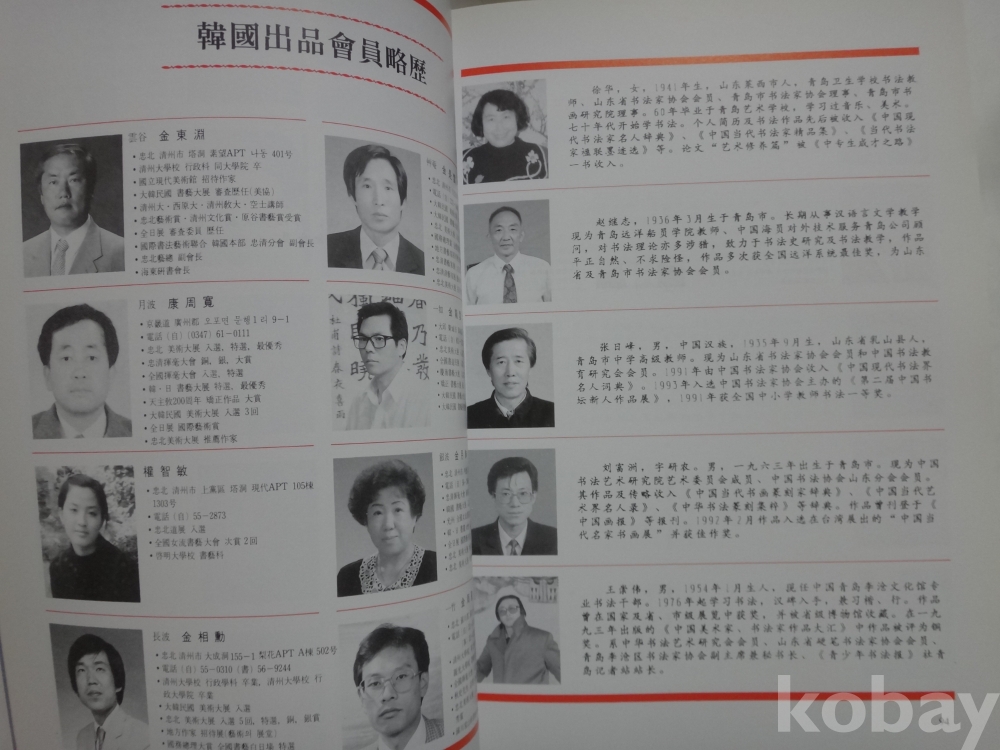 韓國出品會員略歷
雲谷 金東淵
• 忠北 清州市 塔洞 素望APT 나동 401号
• 清州大學校 行政科 同大學院 卒
• 國立現代美術館 招待作家
• 大韓民國 書藝大展 審査歷任(美協)
• 清州大・西原大・清州敎大・空士講師
• 忠北藝術賞・清州文化賞・原谷書藝賞受賞
• 全日展 審査委員 歷任
• 國際書法藝術聯合 韓國本部 忠清分會 副會長
• 忠北藝總 副會長
• 海東硏書會長
月波 康周寬
• 京畿道 廣州郡 오포면 문형1리 9-1
• 電話 (自) (0347) 61-0111
• 忠北 美術大展 入選, 特選, 最優秀
• 忠清揮毫大會 銅, 銀, 大賞
• 全國揮毫大會 入選, 特選
• 韓・日 書藝大展 特選, 最優秀
• 天主敎200周年 矯正作品 大賞
• 大韓民國 美術大展 入選 3回
• 全日展 國際藝術賞
• 忠北美術大展 推薦作家
權智敏
• 忠北 清州市 上黨區 塔洞 現代APT 105棟
1303号
• 電話 (自) 55-2873
• 忠北道展 入選
• 全國女流書藝大會 次賞 2回
• 啓明大學校 書藝科
長波 金相勳
• 忠北 清州市 大成洞155-1 梨花APT A棟 502号
• 電話 (自) 55-0310 (書) 56-9244
• 清州大學校 行政學科 卒業, 清州大學校 行
政大學院 卒業
• 大韓民國 美術大展 入選
• 忠北 美術大展 入選 5回, 特選, 銅, 銀賞
• 地方作家 招待展(藝術의 展堂)
• 國務總理大賞 全國書藝白日場 特選
徐华，女，1941年生，山东莱西市人，青岛卫生学校书法教
师、山东省书法家协会会员、青岛市书法家协会理事、青岛市书
画研究院理事。60年毕业于青岛艺术学校，学习过音乐、美术。
七十年代开始学书法。个人简历及书法作品先后被收入《中国现
代书法家名人辞典》、《中国当代书法家精品集》、《当代书法
家楹联墨迹选》等。论文“艺术修养篇”被《中专生成才之路》
一书收入。
赵继志，1936年3月生于青岛市。长期从事汉语言文学教学
现为青岛远洋船员学院教师、中国海员对外技术服务青岛公司顾
问，对书法理论亦多涉猎，致力于书法史研究及书法教学，作品
平正自然、不求险怪，作品多次获全国远洋系统最佳奖，为山东
省及青岛市书法家协会会员。
张日峰，男，中国汉族，1935年9月生，山东省乳山县人，
青岛市中学高级教师。现为山东省书法家协会会员和中国书法教
育研究会会员。1991年由中国书法家协会收入《中国现代书法界
名人词典》。1993年入选中国书法家协会主办的《第二届中国书
坛新人作品展》，1991年获全国中小学教师书法一等奖。
刘富洲，字研农。男，一九六三年出生于青岛市。现为中国
书法艺术研究院艺术委员会成员、中国书法协会山东分会会员。
其作品及传略收入《中国当代书画篆刻家辞典》、《中国当代艺
术界名人录》、《中华书法篆刻集粹》等辞典。作品曾刊登于《
中国画报》等报刊。1992年2月作品入选在台湾展出的“中国当
代名家书画展”并获佳作奖。
王崇伟，男，1954年1月生人，现任中国青岛李沧文化馆专
业书法干部。1976年起学习书法，汉碑入手，兼习楷、行。作品
曾在国家及省、市级展览中获奖，并被省级博物馆收藏。在一九
九三年出版的《中国美术家、书法家作品大汇》中作品被评为铜
奖。系中华书法艺术研究会会员、山东省硬笔书法家协会会员、
青岛李沧区书法家协会副主席兼秘书长、《青少年书法报》社青
岛记者站站长。
kobay